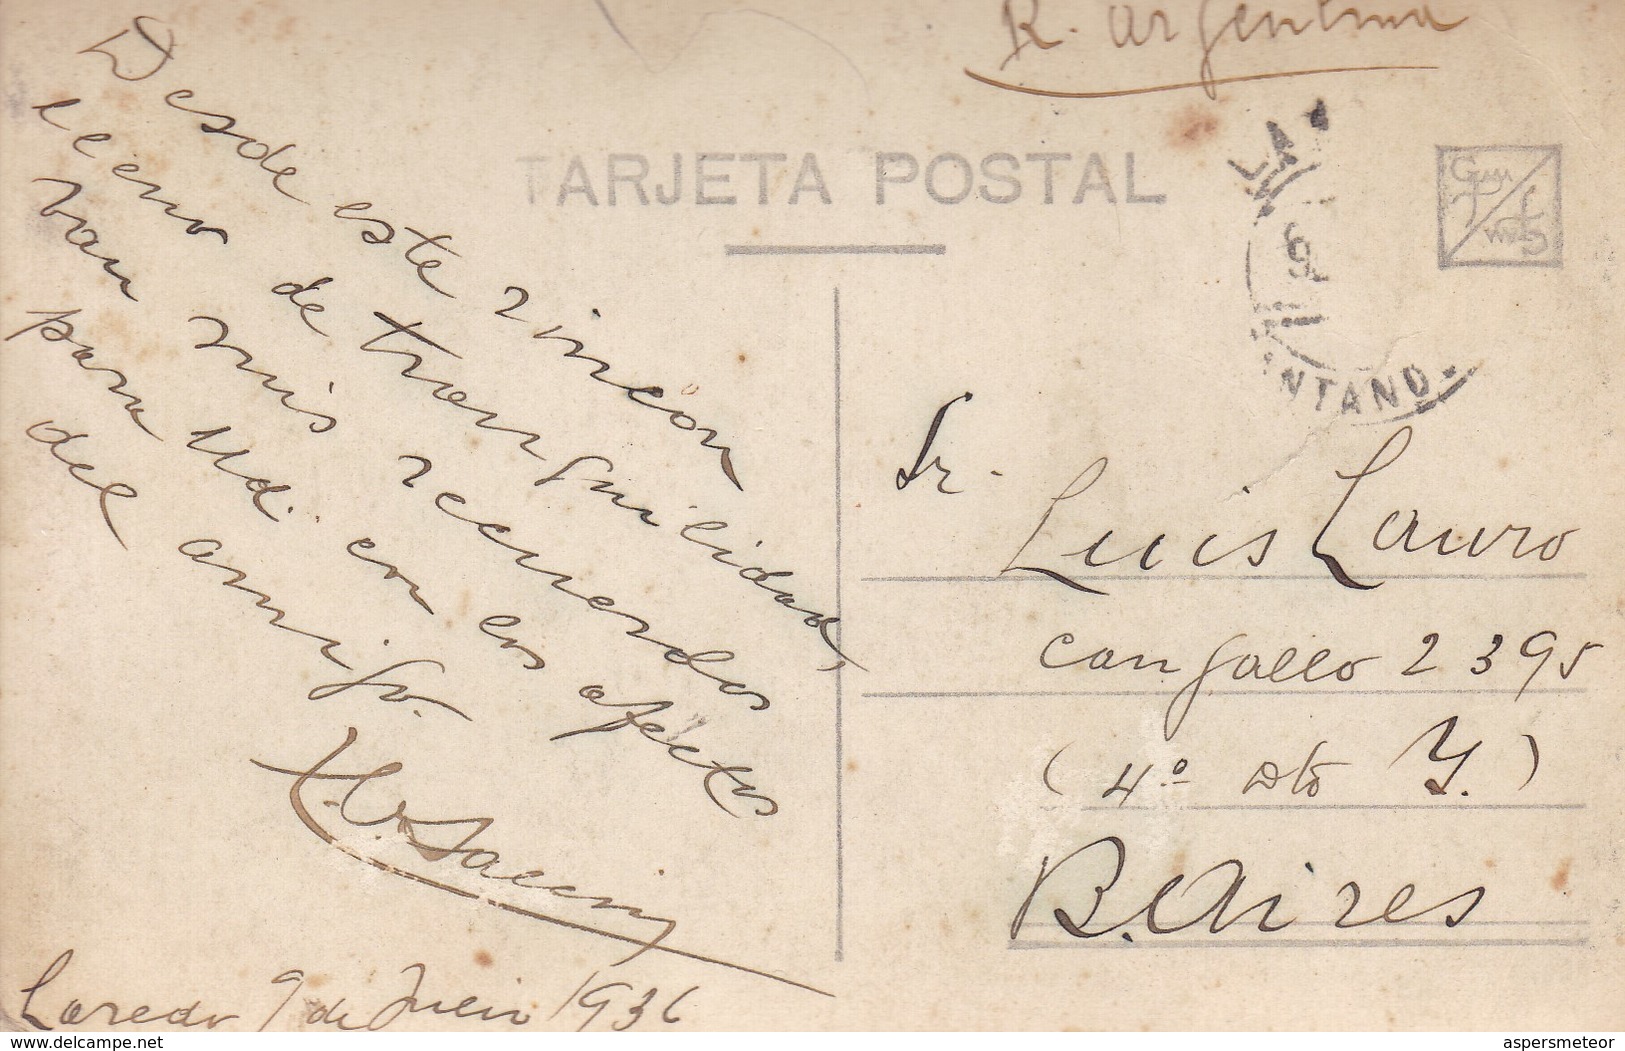 R. Argentina
TARJETA POSTAL
Desde este rincon
lleno de tranquilidad,
van mis recuerdos
para Ud. con los afectos
del amigo.
Laredo 9 de Julio 1936
Sr.
Luis Lauro
Cangallo 2395
(4º Dto Y.)
B. Aires
NTAND.
delcampe.net
aspersmeteor